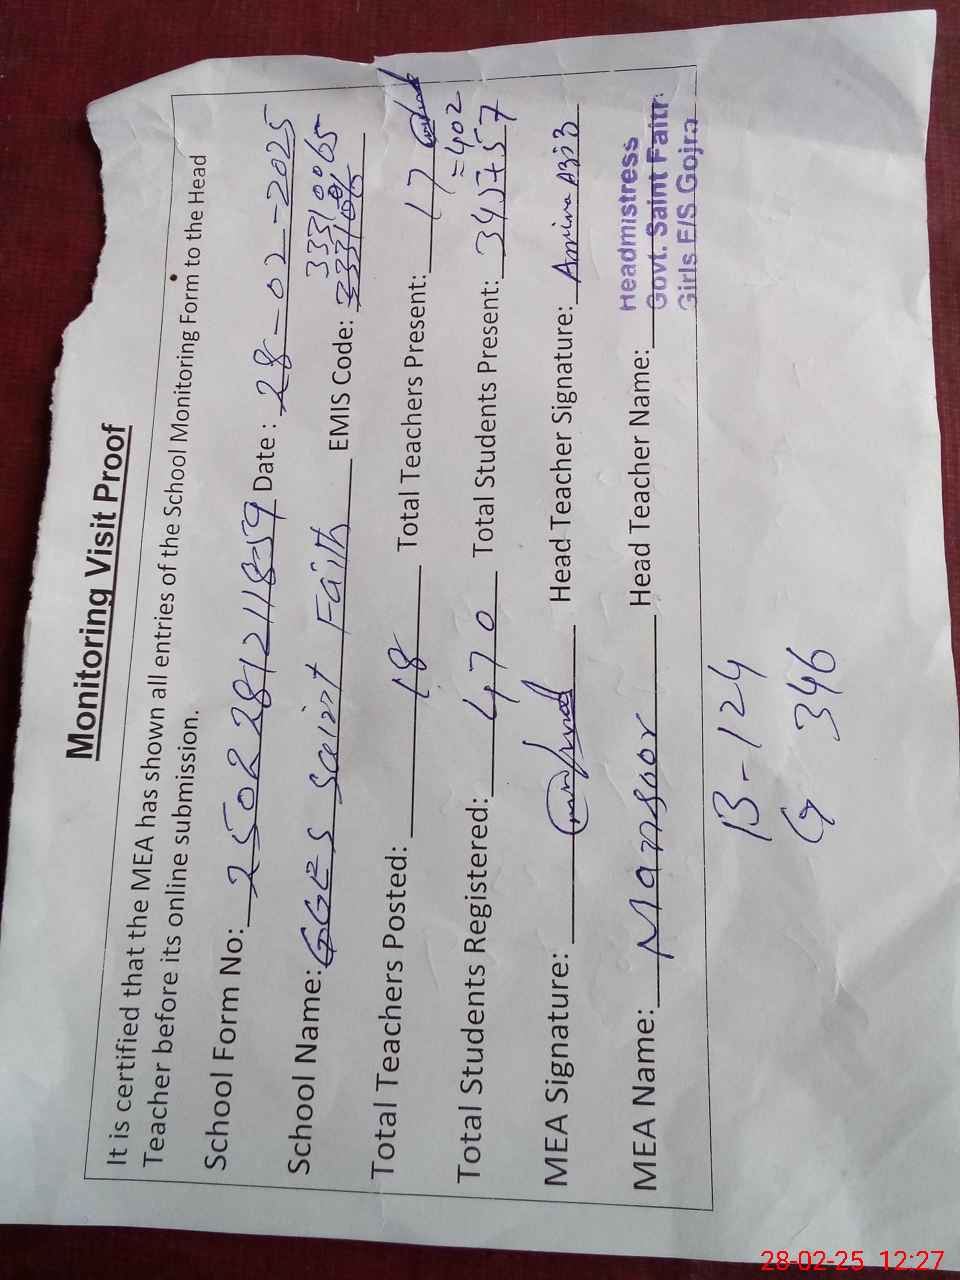 Monitoring Visit Proof
It is certified that the MEA has shown all entries of the School Monitoring Form to the Head
Teacher before its online submission.
School Form No: 2502281211859 Date : 28-02-2025
33310065
School Name: GGES Saint Faith EMIS Code:
Total Teachers Posted: 18 Total Teachers Present: 17
=402
Total Students Registered: 470 Total Students Present: 345+57
MEA Signature: Head Teacher Signature: Amina Aziz
MEA Name: Mansoor Head Teacher Name:
Headmistress
Govt. Saint Faith
Girls E/S Gojra
B-124
G 346
28-02-25 12:27